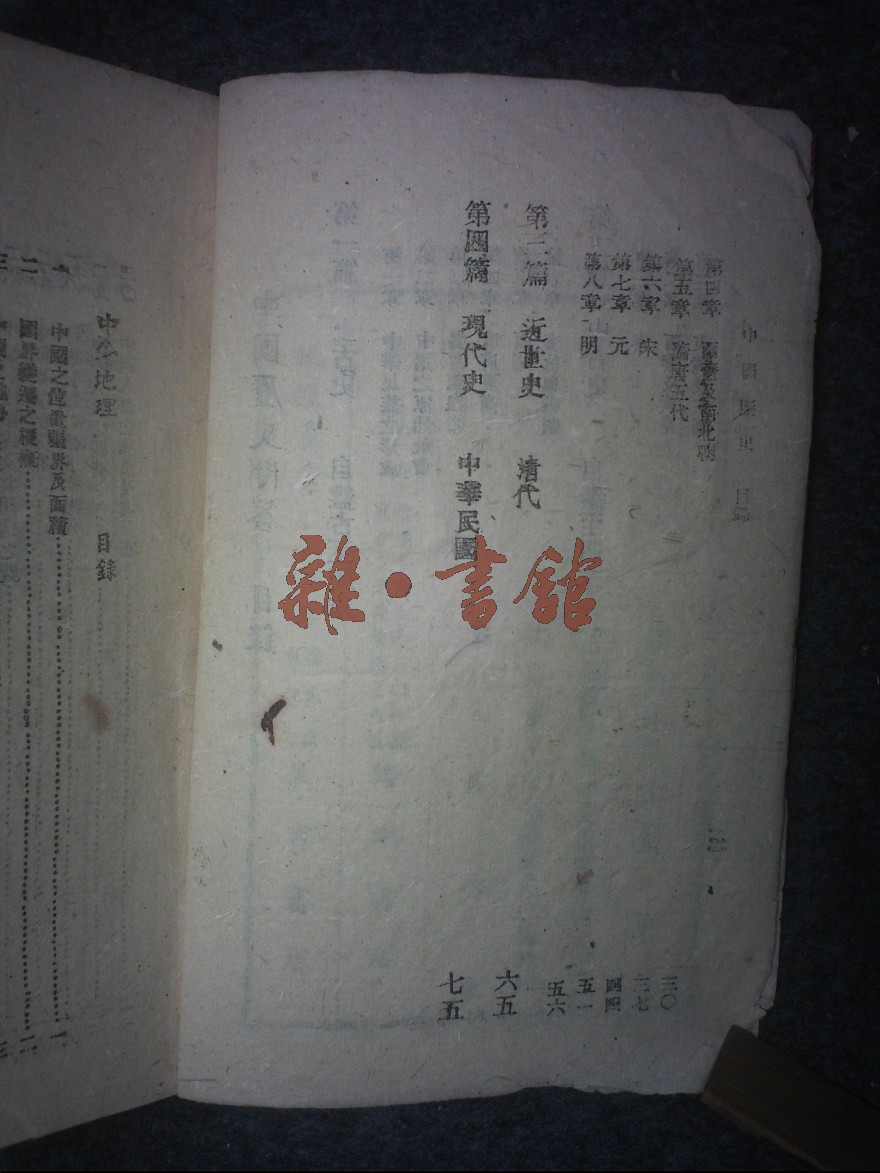 中國歷史 目錄
二
第四章 兩晉及南北朝
三〇
第五章 隋唐五代
三七
第六章 宋
四四
第七章 元
五一
第八章 明
五六
第三篇 近世史 清代
六五
第四篇 現代史 中華民國
七五
雜·書館
中 地理 目錄
一 中國之位置疆界及面積 一
二 國界變遷之梗概 二
三